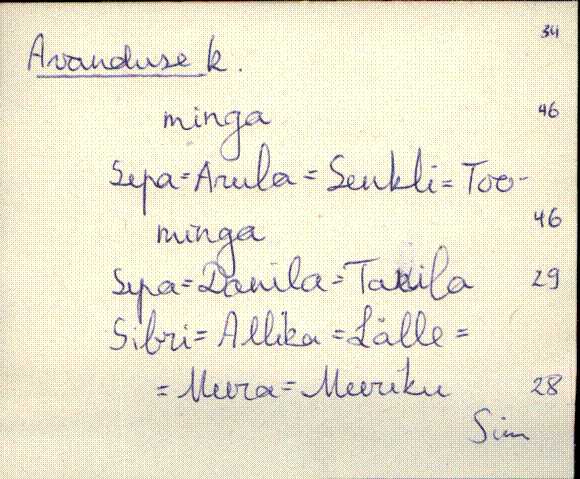 34
Avanduse k.
minga 46
Sepa=Arula=Senkli=Too-
minga 46
Sepa=Danila=Tanila 29
Sibri=Allika=Lälle=
=Meera=Meeriku 28
Sim